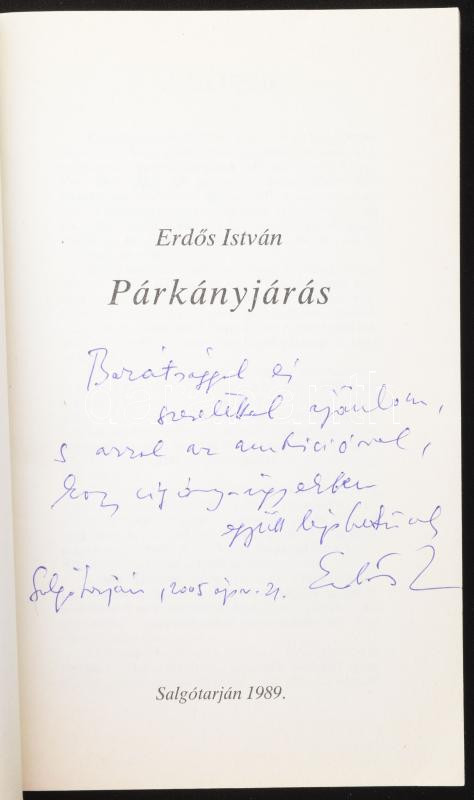 Erdős István
Párkányjárás
Barátsággal és
szeretettel ajánlom,
s azzal az ambícióval,
hogy cigány-ügyekben
együtt léphetünk
Salgótarján, 2005 ápr. 21. Erdős I
Salgótarján 1989.